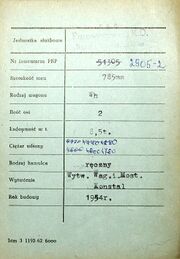 Jednostka służbowa
Nr inwentarza PKP 51305 2905-2
Szerokość toru 785mm
Rodzaj wagonu Wh
Ilość osi 2
Ładowność w t 8,5t.
Ciężar własny
Rodzaj hamulca ręczny
Wytwórnia Wytw. Wag.i.Most. Konstal
Rok budowy 1954r.